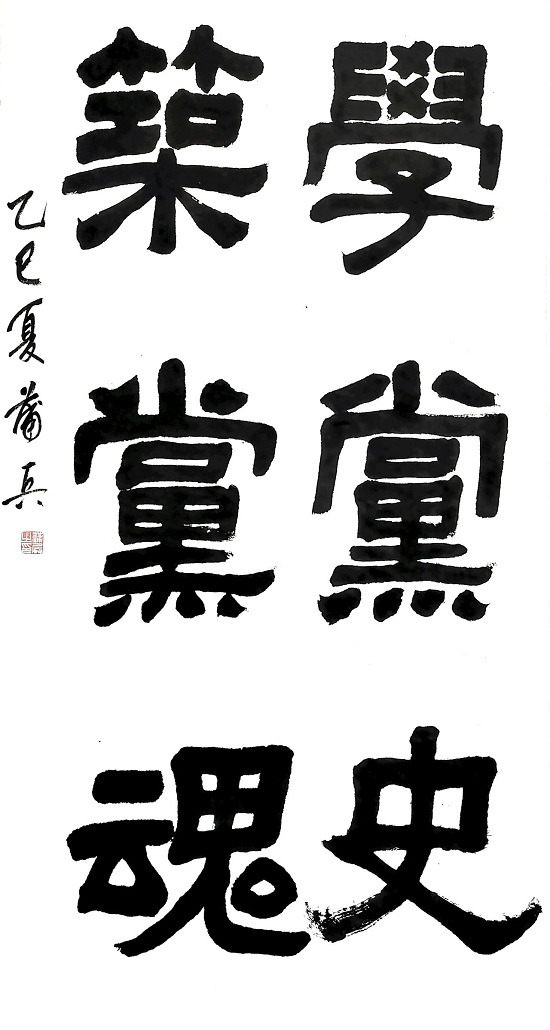 學黨史
築黨魂
乙巳夏蒲兵